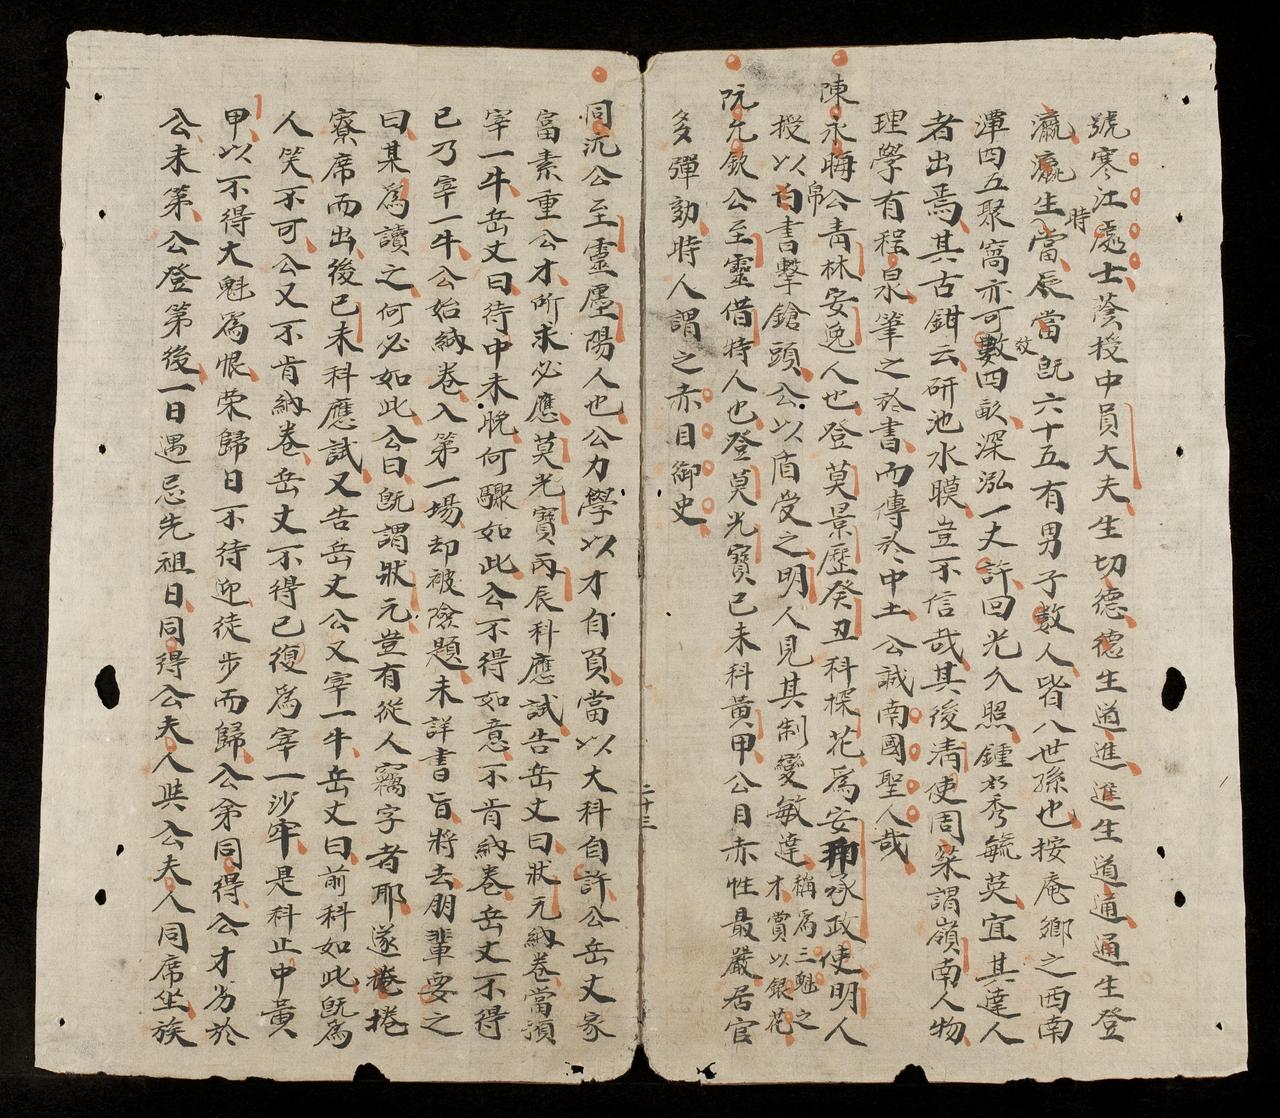 號寒江處士蔭授中員大夫生切德德生道進進生道通通生登
瀛瀛生當時辰當旣六十五有男子數人皆八世孫也按庵鄉之西南
潭四五聚窩亦可數四畝深泓一丈許回光久照鍾水秀毓英宜其達人
者出焉其古鉗云研池水膜豈不信哉其後清使周粲謂嶺南人物
理學有程泉筆之於書而傳於中土公誠南國聖人哉
陳永晦公青林安逸人也登莫景歷癸丑科探花爲安邦承政使明人
授以白帛書擊鎗頭公以盾受之明人見其制變敏達稱爲三魁之才賞以銀花
阮允欽公至靈借特人也登莫光寶己未科黃甲公目赤性最嚴居官
多彈劾時人謂之赤目御史
同沆公至靈㕓陽人也公力學以才自負當以大科自許公岳丈家
富素重公才所求必應莫光寶丙辰科應試告岳丈曰狀元納卷當預
宰一牛岳丈曰待中未晚何驟如此公不得如意不肯納卷岳丈不得
已乃宰一牛公始納卷入第一場却被險題未詳書旨將去朋輩要之
曰某爲讀之何必如此公曰旣謂狀元豈有從人竊字者耶遂捲捲
寮席而出後已未科應試又告岳丈公又宰一牛岳丈曰前科如此旣爲
人笑不可公又不肯納卷岳丈不得已復爲宰一沙牢是科止中黃
甲以不得大魁爲恨荣歸日不待迎徒步而歸公弟同得公才劣於
公未第公登第後一日遇忌先祖日同得公夫人與公夫人同席坐族
二十三